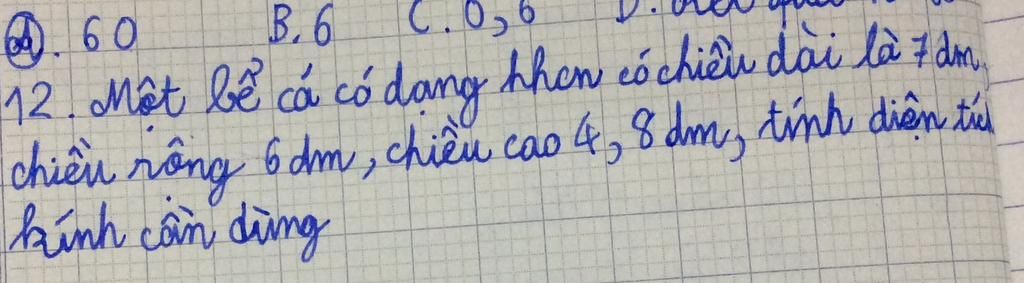 A. 60 B. 6 C. 0,6 D.
12. Một bể cá có dạng hhcn có chiều dài là 7 dm,
chiều rộng 6 dm, chiều cao 4,8 dm, tính diện tích
kính cần dùng